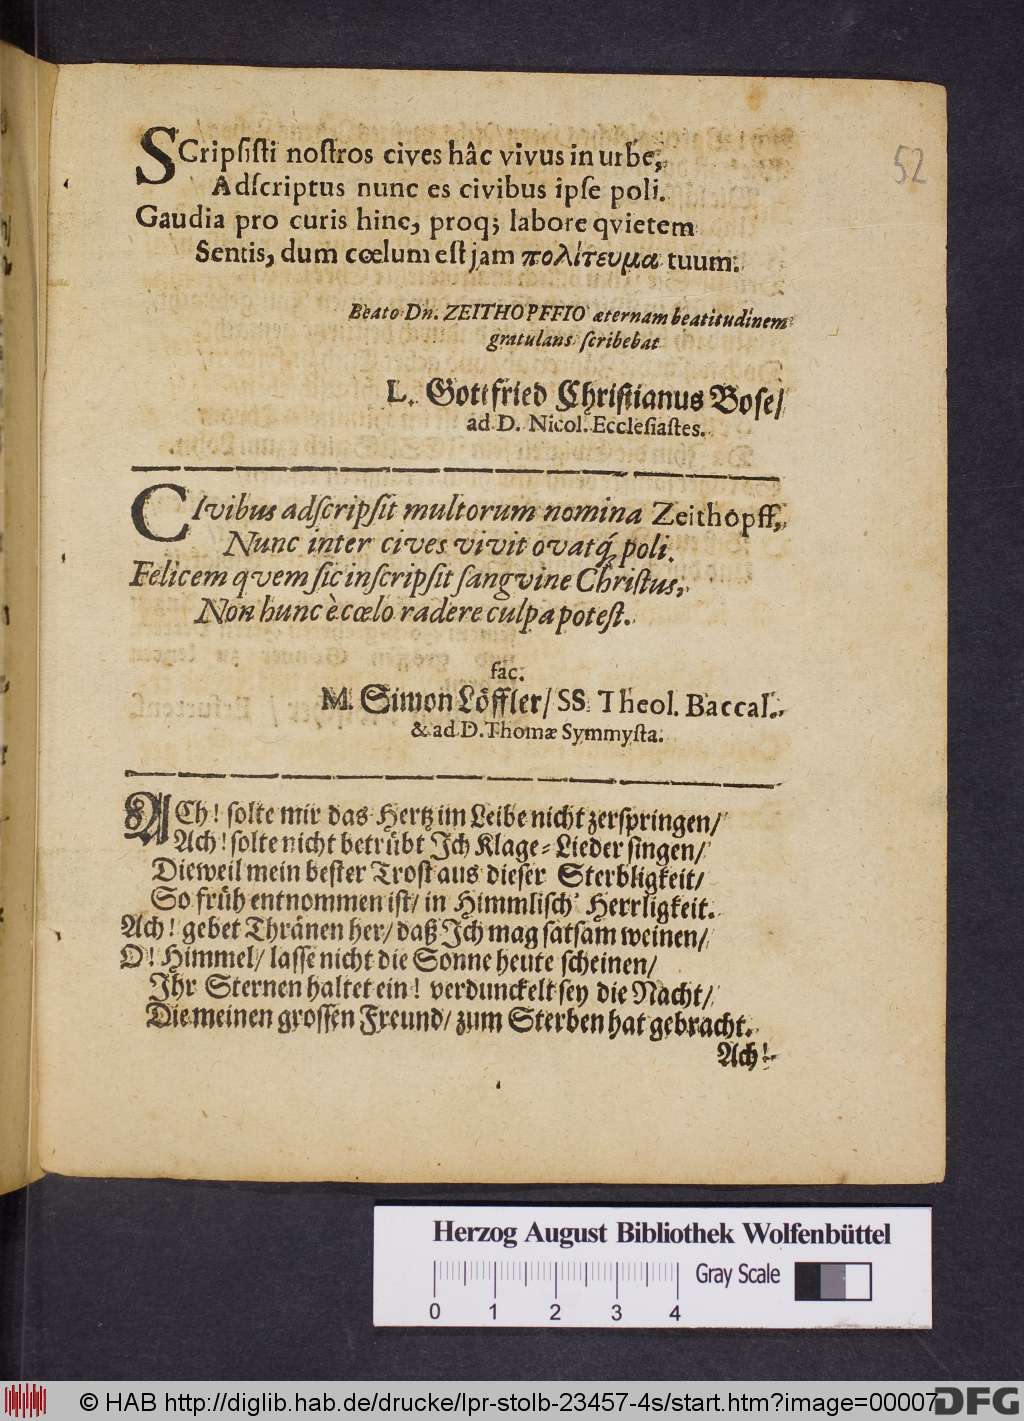 52
SCripsisti nostros cives hâc vivus in urbe,
Adscriptus nunc es civibus ipse poli.
Gaudia pro curis hinc, proq; labore qvietem
Sentis, dum cœlum est jam πολίτευμα tuum.
Beato Dn. ZEITHOPFFIO æternam beatitudinem
gratulans scribebat
L. Gottfried Christianus Bose/
ad D. Nicol. Ecclesiastes.
CIvibus adscripsit multorum nomina Zeithopff,
Nunc inter cives vivit ovatq́; poli.
Felicem qvem sic inscripsit sangvine Christus,
Non hunc è cœlo radere culpa potest.
fac.
M. Simon Löffler/ SS. Theol. Baccal.
& ad D. Thomæ Symmysta.
ACh! solte mir das Hertz im Leibe nicht zerspringen/
Ach! solte nicht betrübt Ich Klage-Lieder singen/
Dieweil mein bester Trost aus dieser Sterbligkeit/
So früh entnommen ist/ in Himmlisch' Herrligkeit.
Ach! gebet Thränen her/ daß Ich mag satsam weinen/
O! Himmel/ lasse nicht die Sonne heute scheinen/
Ihr Sternen haltet ein! verdunckelt sey die Nacht/
Die meinen grossen Freund/ zum Sterben hat gebracht.
Ach!
Herzog August Bibliothek Wolfenbüttel
Gray Scale
0 1 2 3 4
© HAB http://diglib.hab.de/drucke/lpr-stolb-23457-4s/start.htm?image=00007
DFG